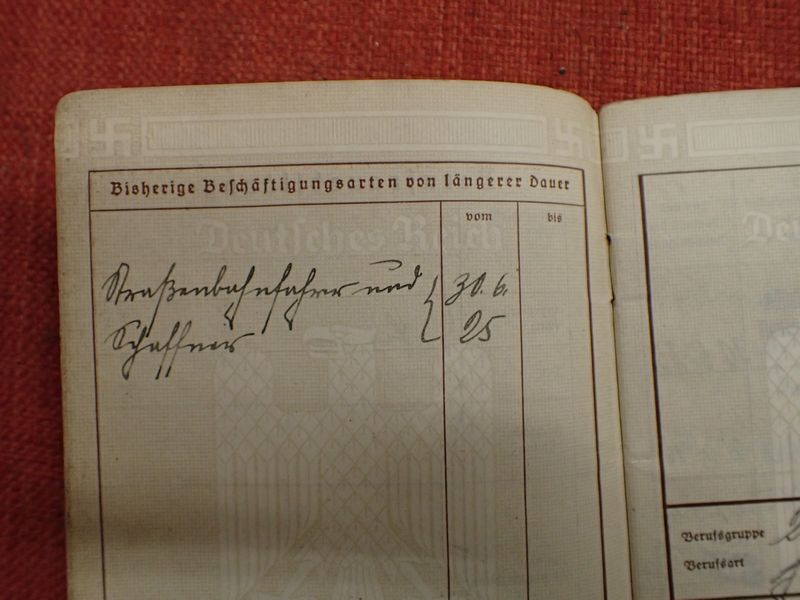 Bisherige Beschäftigungsarten von längerer Dauer
vom
bis
Deutsches Reich
Straßenbahnfahrer und
30. 6.
Schaffner
25
Berufsgruppe
Berufsart